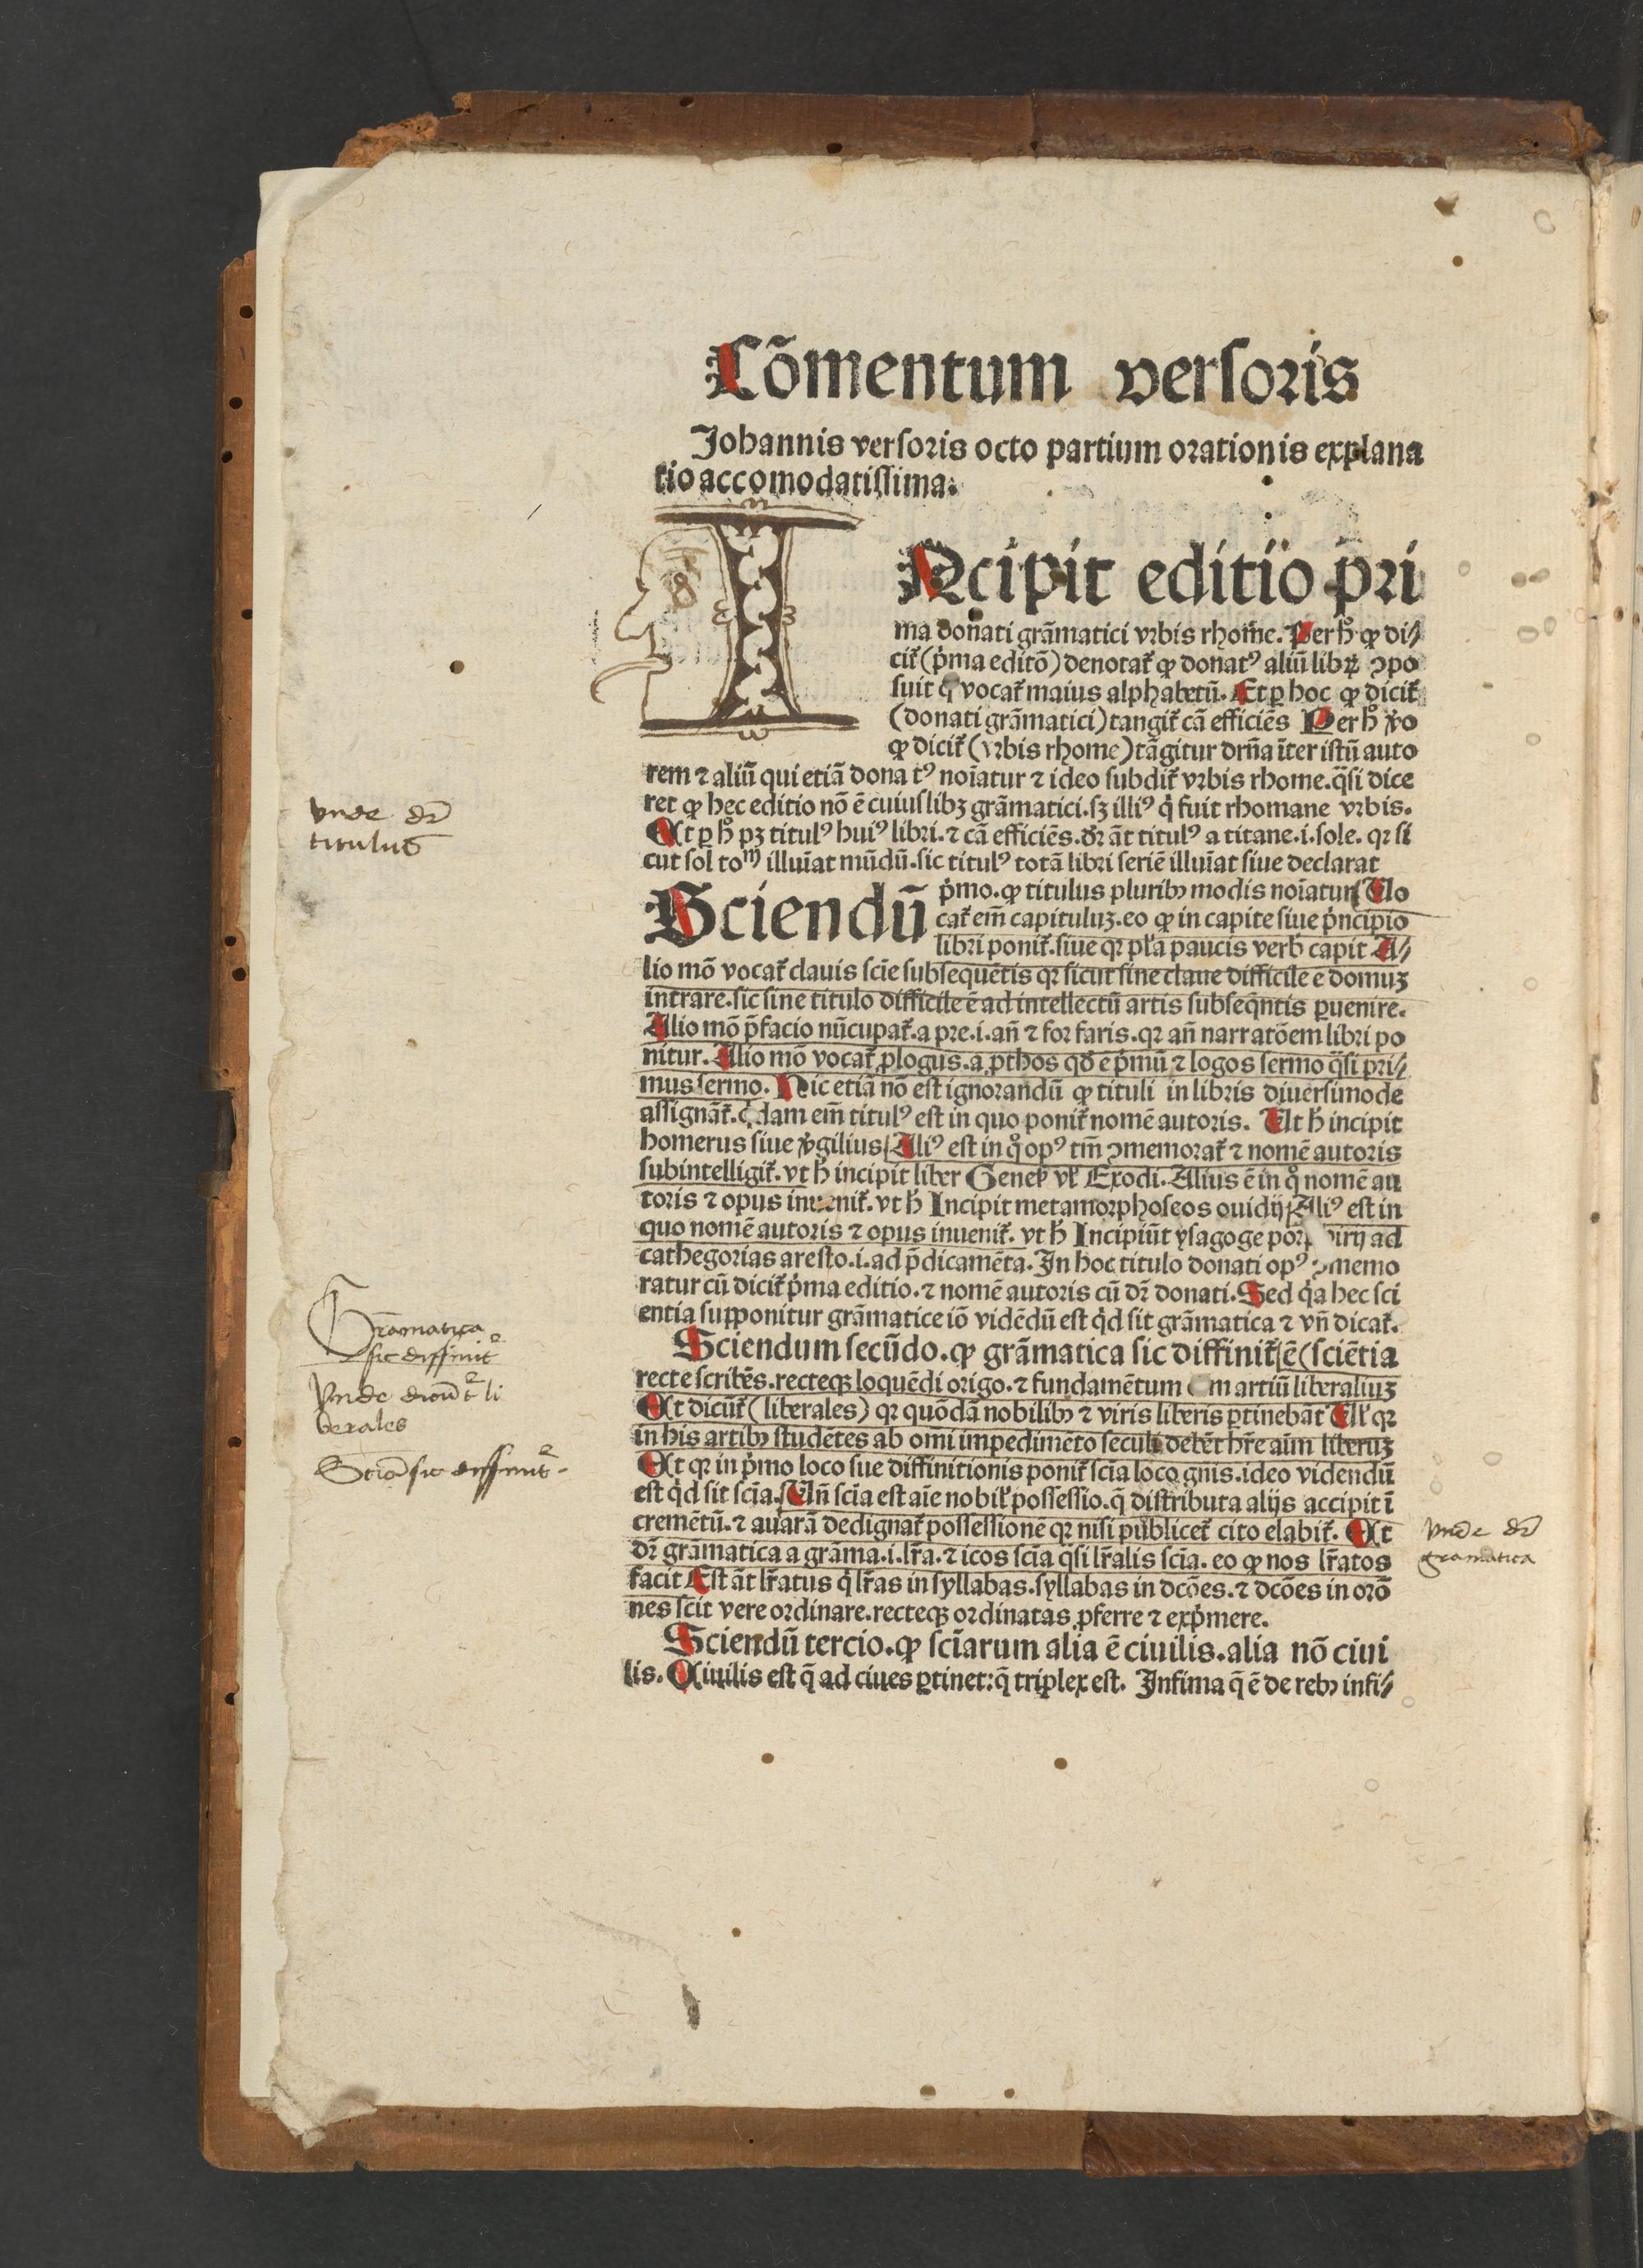 Cõmentum versoris
Johannis versoris octo partium orationis explana
tio accomodatissima.
INcipit editio pri
ma donati grãmatici vrbis rhome. Per hͦ ꝙ di⸗
cit᷑ (pͥma editõ) denotat᷑ ꝙ donatꝰ aliũ libꝝ ꝯpo
suit q̇ vocat᷑ maius alphabetũ. Et ꝑ hoc ꝙ dicit᷑
(donati grãmatici) tangit᷑ cã efficiẽs Per hͦ v̊o
ꝙ dicit᷑ (vrbis rhome) tãgitur drña ĩter istũ auto
rem ⁊ aliũ qui etiã dona tꝰ noĩatur ⁊ ideo subdit᷑ vrbis rhome. q̃si dice
ret ꝙ hec editio nõ ẽ cuiuslibꝫ grãmatici. sꝫ illiꝰ q̇ fuit rhomane vrbis.
Et ꝑ hͦ pꝫ titulꝰ huiꝰ libri. ⁊ cã efficiẽs. dr̃ ãt titulꝰ a titane .i. sole. qꝛ si
cut sol toᵐ illuĩat mũdũ. sic titulꝰ totã libri seriẽ illuĩat siue declarat
Sciendũ pͥmo. ꝙ titulus pluribꝰ modis noĩatur Uo
cat᷑ em̃ capituluꝫ. eo ꝙ in capite siue pͥncipio
libri ponit᷑. siue qꝛ pl'a paucis verb̾ capit A⸗
lio mõ vocat᷑ clauis scĩe subsequẽtis qꝛ sicut sine claue difficile ẽ domuꝫ
intrare. sic sine titulo difficile ẽ ad intellectũ artis subseq̃ntis ꝑuenire.
Alio mõ p̃facio nũcupat᷑. a pre .i. añ ⁊ for faris. qꝛ añ narratõem libri po
nitur. Alio mõ vocat᷑ ꝓlogus. a ꝓthos qd̾ ẽ pͥmũ ⁊ logos sermo q̃si pri⸗
mus sermo. Hic etiã nõ est ignorandũ ꝙ tituli in libris diuersimode
assignãt᷑. dam em̃ titulꝰ est in quo ponit᷑ nomẽ autoris. Ut h̾ incipit
homerus siue v̓gilius Aliꝰ est in qͦ opꝰ tm̃ ꝯmemorat᷑ ⁊ nomẽ autoris
subintelligit᷑. vt h̾ incipit liber Geneẜ vl' Exodi. Alius ẽ in qͦ nomẽ au
toris ⁊ opus inuenit᷑. vt h̾ Incipit metamorphoseos ouidij Aliꝰ est in
quo nomẽ autoris ⁊ opus inuenit᷑. vt h̾ Incipiũt ysagoge por irij ad
cathegorias aresto .i. ad p̃dicamẽta. In hoc titulo donati opꝰ ꝯmemo
ratur cũ dicit᷑ pͥma editio. ⁊ nomẽ autoris cũ dr̃ donati. Sed q̇a hec sci
entia supponitur grãmatice iõ vidẽdũ est q̇d sit grãmatica ⁊ vñ dicat᷑.
Sciendum secũdo. ꝙ grãmatica sic diffinit᷑ ẽ (sciẽtia
recte scribẽs. recteqꝫ loquẽdi origo. ⁊ fundamẽtum m artiũ liberaliuꝫ
Et dicũt᷑ (liberales) qꝛ quõdã nobilibꝰ ⁊ viris liberis ꝑtinebãt Ul' qꝛ
in his artibꝰ studẽtes ab omi impedimẽto seculi debẽt hr̃e aĩm liberuꝫ
Et qꝛ in pͥmo loco sue diffinitionis ponit᷑ scĩa loco gñis. ideo videndũ
est q̇d sit scĩa. Uñ scĩa est aĩe nobil' possessio. q̃ distributa alijs accipit ĩ
cremẽtũ. ⁊ auarã dedignat᷑ possessionẽ qꝛ nisi publicet᷑ cito elabit᷑. Et
dr̃ grãmatica a grãma .i. lr̃a. ⁊ icos scĩa q̃si lr̃alis scĩa. eo ꝙ nos lr̃atos
facit Est ãt lr̃atus q̇ lr̃as in syllabas. syllabas in dcões. ⁊ dcões in orõ
nes scit vere ordinare. recteqꝫ ordinatas ꝓferre ⁊ expͥmere.
Sciendũ tercio. ꝙ scĩarum alia ẽ ciuilis. alia nõ ciui
lis. Ciuilis est q̃ ad ciues ꝑtinet: q̃ triplex est. Infima q̃ ẽ de rebꝰ infi⸗
vnde dr̃
titulus
Grãmatica
sic diffinit᷑
Vnde dicũt᷑ li
berales
Sciã sic diffinit᷑.
Vnde dr̃
gramatica